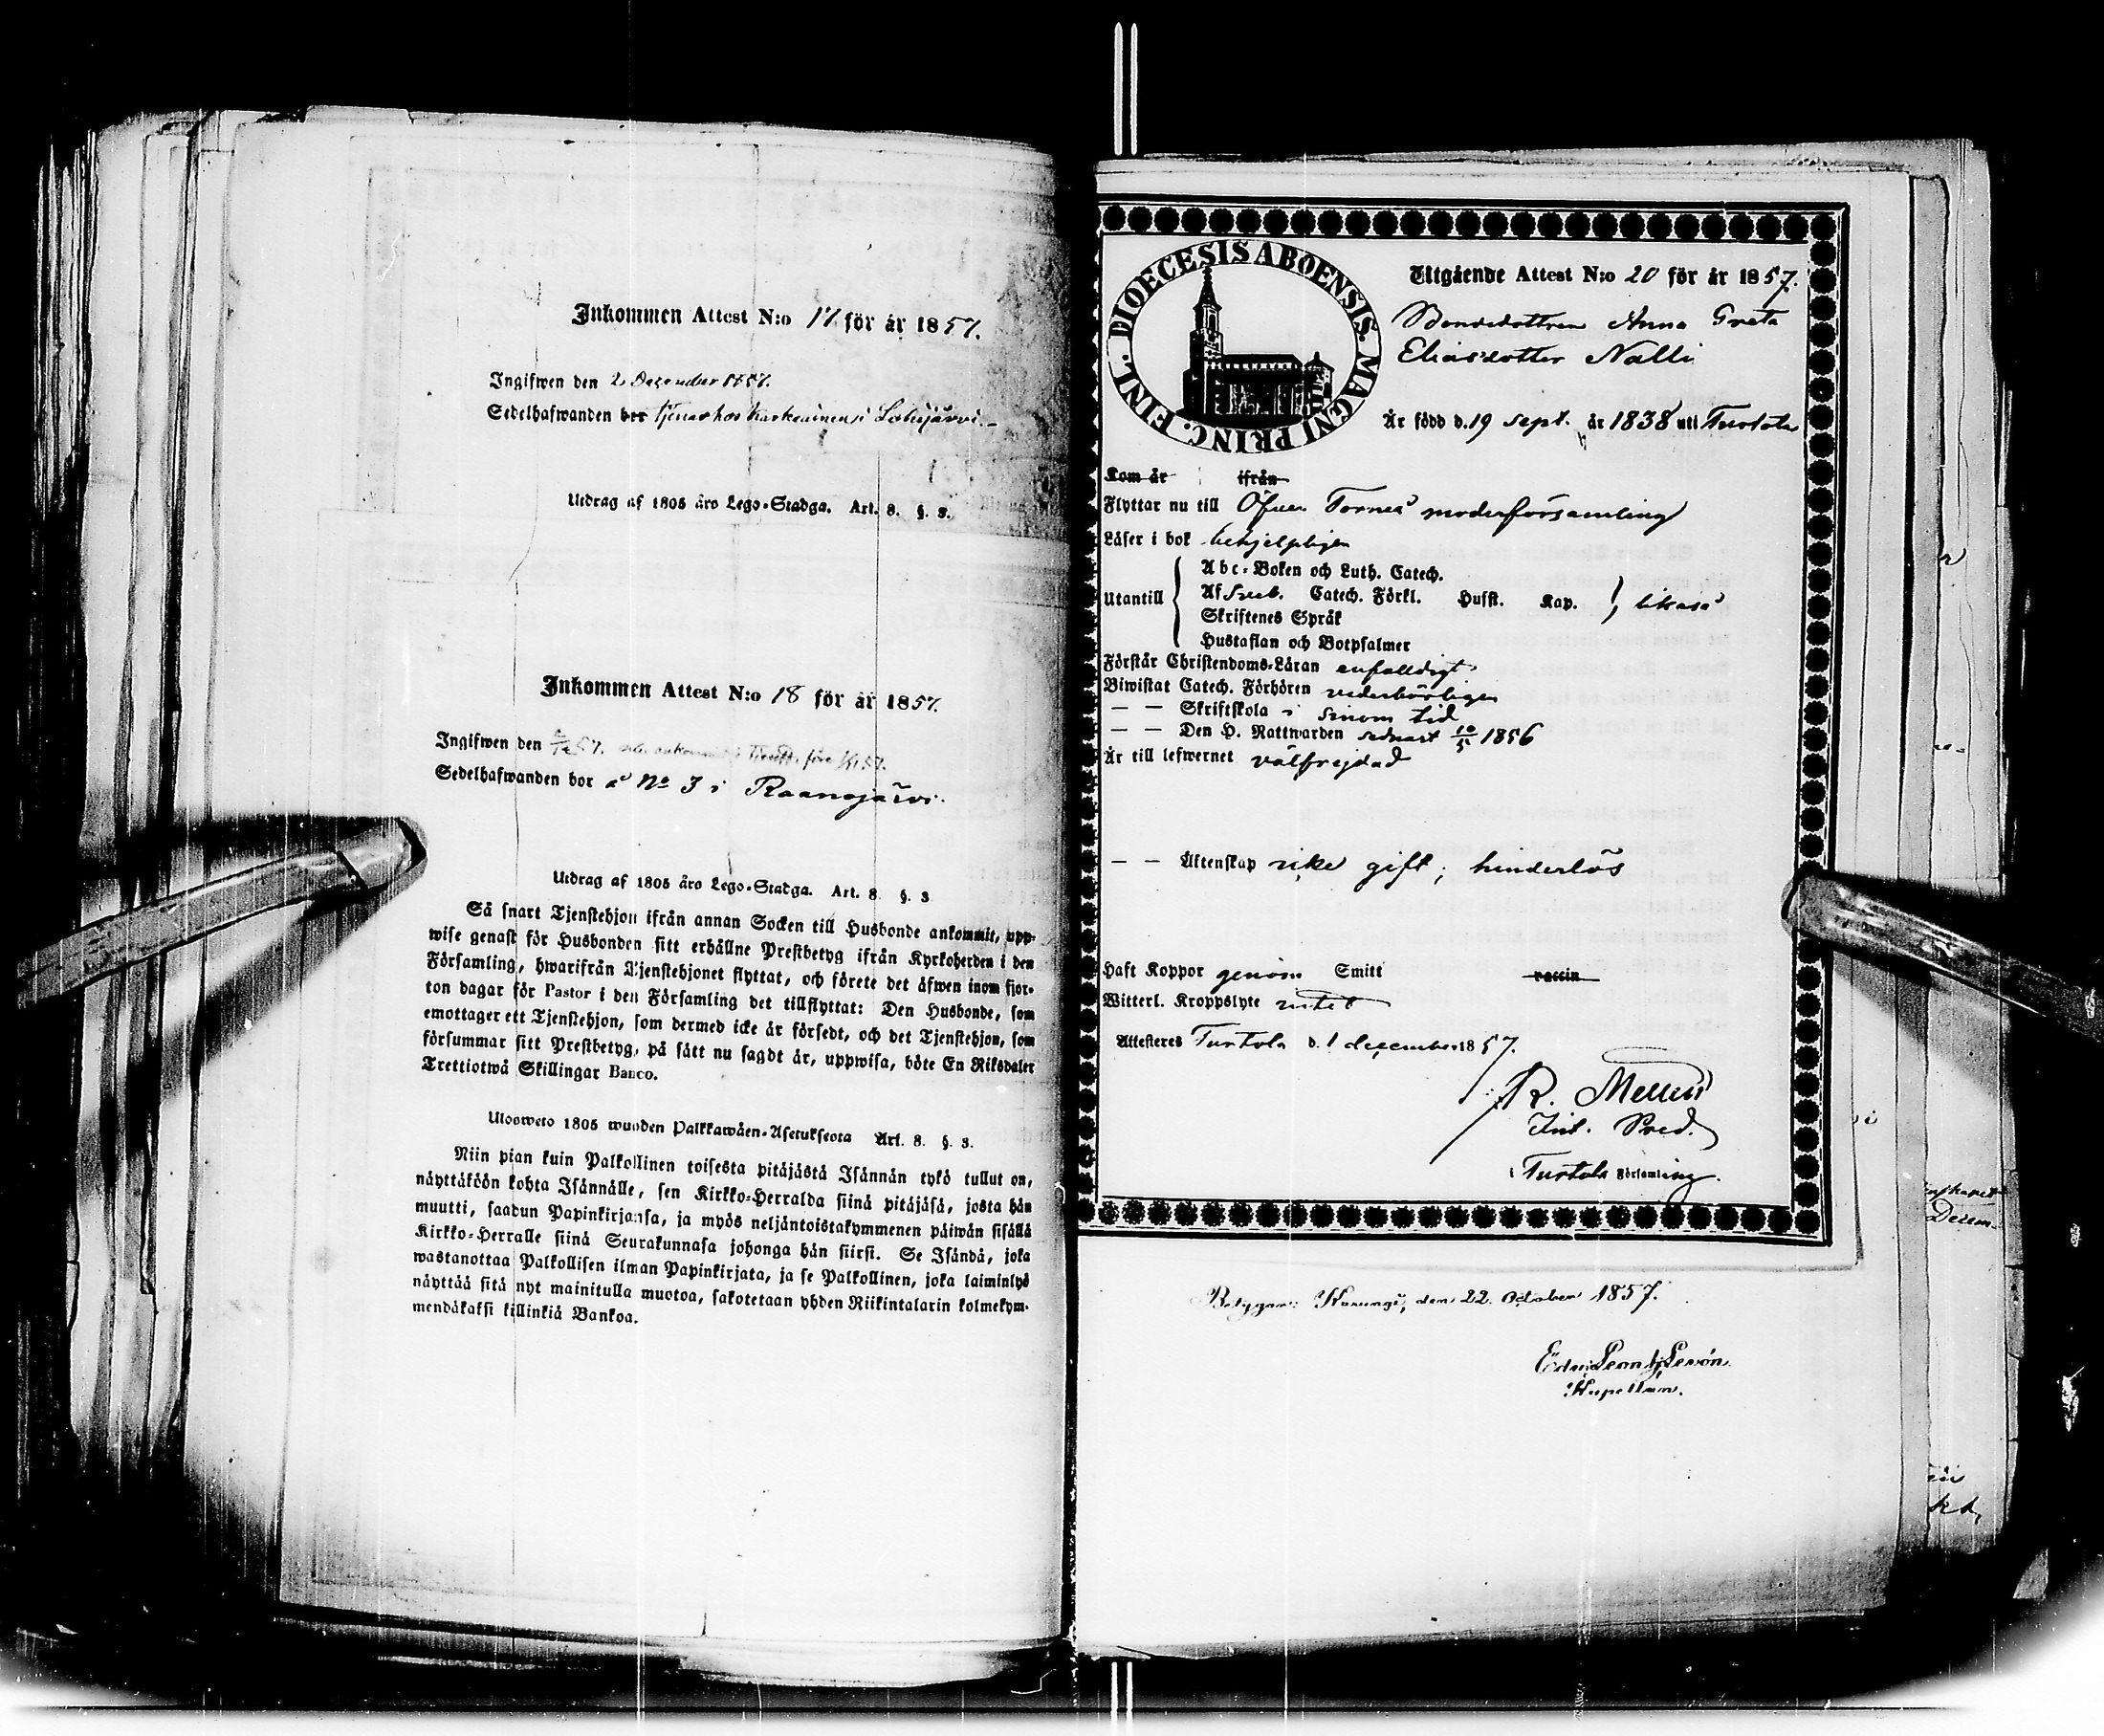 Inkommen Attest N:o 17 för år 1857.
Ingifwen den 2 December 1857.
Sedelhafwanden bor tjenar hos i Lohijärvi.
Utdrag af 1805 års Lego-Stadga. Art. 8. §. 3.
Inkommen Attest N:o 18 för år 1857.
Ingifwen den
Sedelhafwanden bor å No 3 i Raanojärvi.
Utdrag af 1805 års Lego-Stadga. Art. 8. §. 3
Så snart Tjenstehjon ifrån annan Socken till Husbonde ankommit, upp-
wise genast för Husbonden sitt erhållne Prestbetyg ifrån Kyrkoherden i den
Församling, hwarifrån Tjenstehjonet flyttat, och förete det äfwen inom fjor-
ton dagar för Pastor i den Församling det tillflyttat: Den Husbonde, som
emottager ett Tjenstehjon, som dermed icke är försedt, och det Tjenstehjon, som
försummar sitt Prestbetyg, på sätt nu sagdt är, uppwisa, böte En Riksdaler
Trettiotwå Skillingar Banco.
Ulosweto 1805 wuoden Palkkawäen-Asetuksesta Art. 8. §. 3.
Niin pian kuin Palkollinen toisesta pitäjästä Isännän tykö tullut on,
näyttäköön kohta Isännälle, sen Kirkko-Herralda siinä pitäjäsä, josta hän
muutti, saadun Papinkirjansa, ja myös neljäntoistakymmenen päiwän sisällä
Kirkko-Herralle siinä Seurakunnasa johonga hän siirsi. Se Isändä, joka
wastanottaa Palkollisen ilman Papinkirjata, ja se Palkollinen, joka laiminlyö
näyttää sitä nyt mainitulla muotoa, sakotetaan yhden Riikintalarin kolmekym-
mendäkaksi killinkiä Bankoa.
DIOECESIS ABOENSIS. MAGNI PRINC. FINL.
Utgående Attest N:o 20 för år 1857.
Bondedottren Anna Greta
Eliasdotter Nalli
Är född d. 19 sept. år 1838 uti Turtola
Kom år ifrån
Flyttar nu till Öfver Torneå moderförsamling
Läser i bok behjelpligen
Utantill
Abc-Boken och Luth. Catech.
Af Sveb. Catech. Förkl. Husst. Kap. } likaså
Skriftenes Språk
Hustaflan och Botpsalmer
Förstår Christendoms-Läran enfalldigt
Biwistat Catech. Förhören vederbörligen
— — Skriftskola i sinom tid
— — Den H. Nattwarden sednast 10/5 1856
Är till lefwernet välfrejdad
— — Äktenskap icke gift; hinderlös
Haft Koppor genom Smitt vaccin
Witterl. Kroppslyte intet
Attesteres Turtola d. 1 december 1857.
R. Mellin
Pred.
i Turtola Församling.
Betygar: Karungi, den 22. October 1857.
Kapellan.